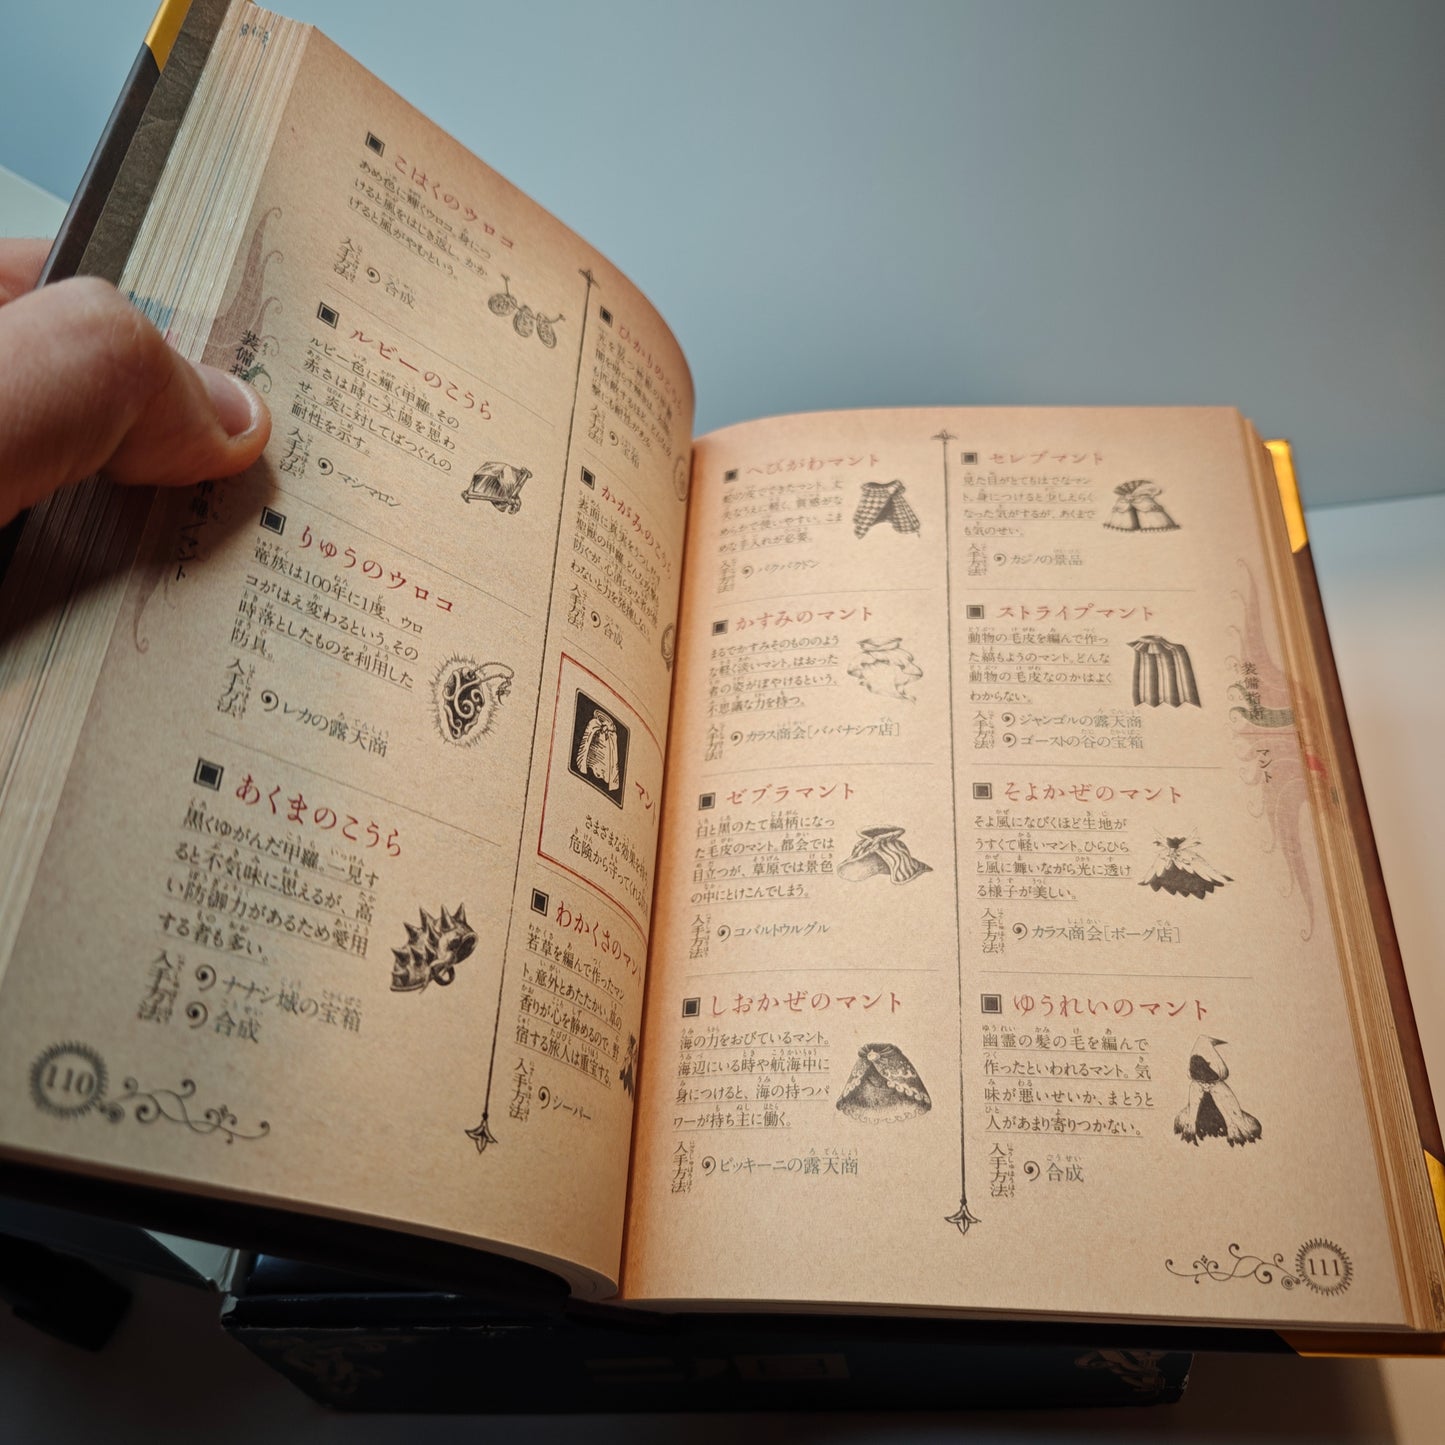 こはくのウロコ
あめ色に輝くウロコ。身につ
けると風をはじき返し、かか
げると風がやむという。
入手方法
合成
ルビーのこうら
ルビー色に輝く甲羅。その
赤さは時に太陽を思わ
せ、炎に対してばつぐんの
耐性を示す。
入手方法
マシマロン
りゅうのウロコ
竜族は100年に1度、ウロ
コがはえ変わるという。その
時落としたものを利用した
防具。
入手方法
レカの露天商
あくまのこうら
黒くゆがんだ甲羅。一見す
ると不気味に思えるが、高
い防御力があるため愛用
する者も多い。
入手方法
ナナシ城の宝箱
合成
110
ひかりのこうら
入手方法
宝箱
かがみのこうら
表面に真実をうつしだす
聖獣の甲羅。どんな攻撃も
防ぐが、心清らかな者が使
わないと力を発揮しない。
入手方法
合成
マント
さまざまな効果を持ち
危険から守ってくれる
わかくさのマント
若草を編んで作ったマン
ト。意外とあたたかい。草の
香りが心を静めるので、野
宿する旅人は重宝する。
入手方法
シーバー
装備指
甲羅/マント
へびがわマント
蛇の皮でできたマント。丈
夫なうえに軽く、質感がな
めらかで使いやすい。こま
めな手入れが必要。
入手方法
パクパクドン
かすみのマント
まるでかすみそのもののよう
な軽く淡いマント。はおった
者の姿がぼやけるという、
不思議な力を持つ。
入手方法
カラス商会[ババナシア店]
ゼブラマント
白と黒のたて縞柄になっ
た毛皮のマント。都会では
目立つが、草原では景色
の中にとけこんでしまう。
入手方法
コバルトウルグル
しおかぜのマント
海の力をおびているマント。
海辺にいる時や航海中に
身につけると、海の持つパ
ワーが持ち主に働く。
入手方法
ビッキーニの露天商
セレブマント
見た目がとてもはでなマン
ト。身につけると少しえらく
なった気がするが、あくまで
も気のせい。
入手方法
カジノの景品
ストライプマント
動物の毛皮を編んで作っ
た縞もようのマント。どんな
動物の毛皮なのかはよく
わからない。
入手方法
ジャンゴルの露天商
ゴーストの谷の宝箱
そよかぜのマント
そよ風になびくほど生地が
うすくて軽いマント。ひらひら
と風に舞いながら光に透け
る様子が美しい。
入手方法
カラス商会[ボーグ店]
ゆうれいのマント
幽霊の髪の毛を編んで
作ったといわれるマント。気
味が悪いせいか、まとうと
人があまり寄りつかない。
入手方法
合成
装備指南
マント
111